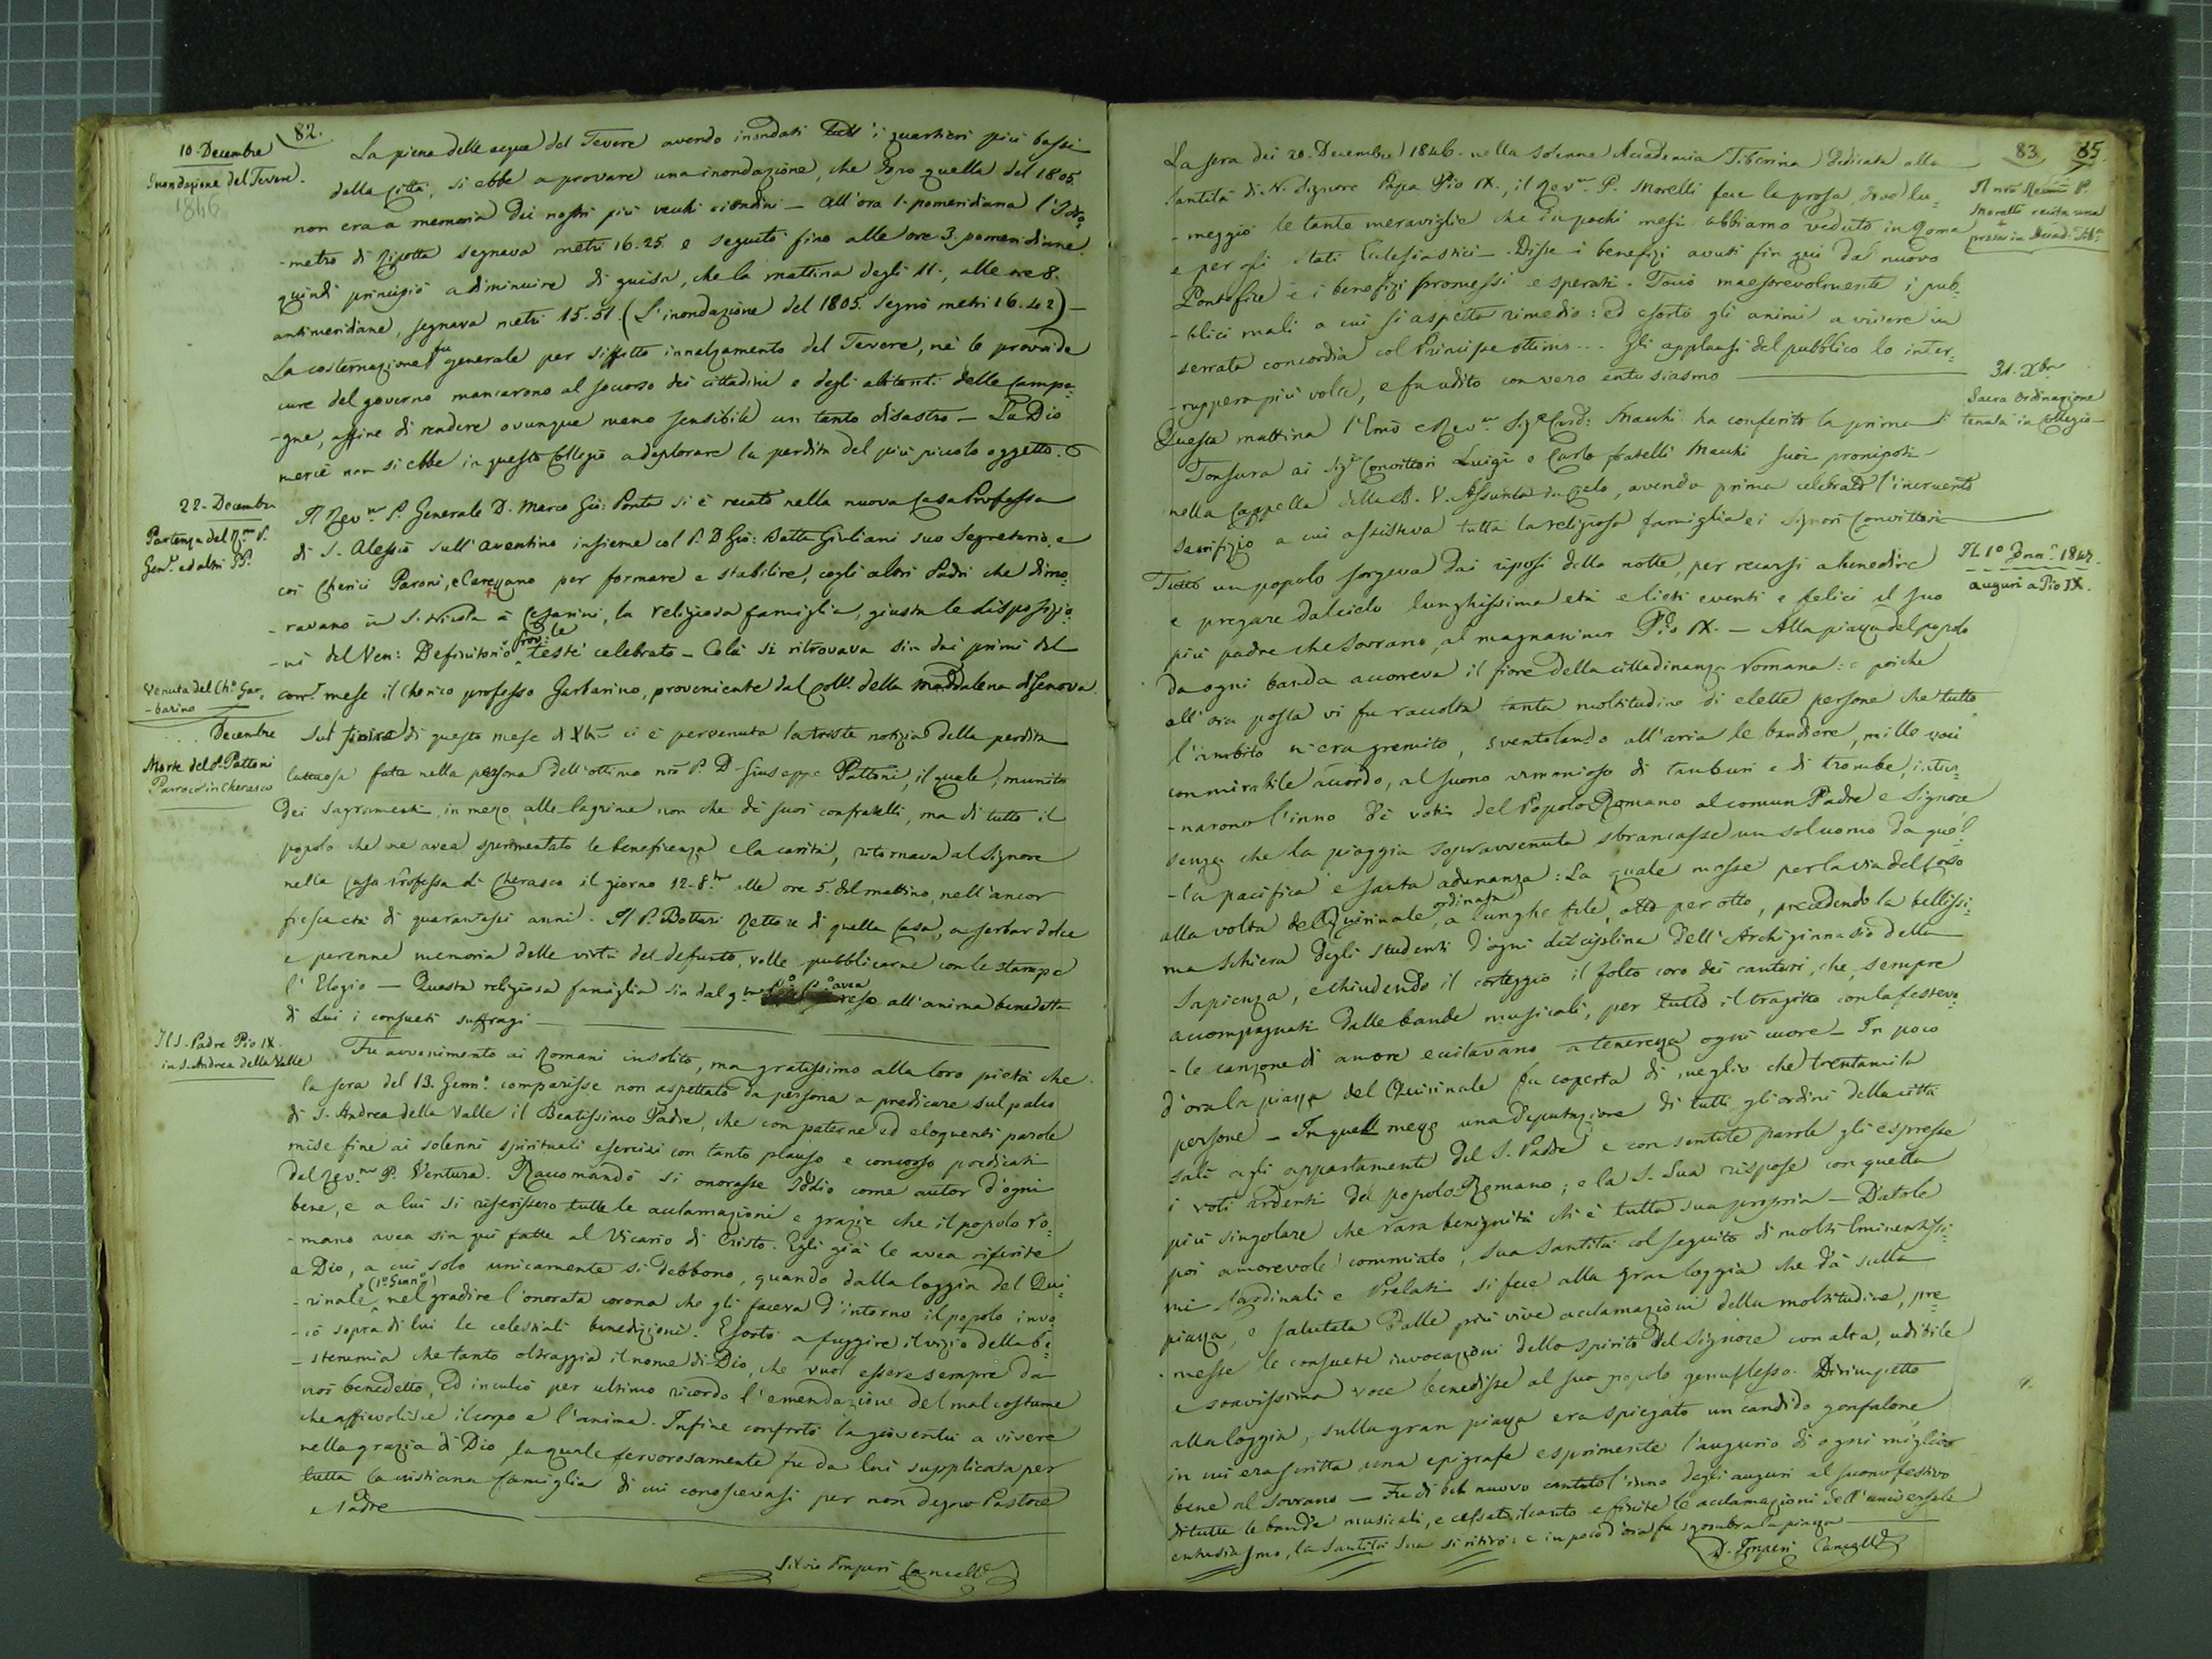 82.
10. Decembre
Inondazione del Tevere.
1846
La piena delle acque del Tevere avendo inondati tutt' i quartieri più bassi
della Città, si ebbe a provare una inondazione, che dopo quella del 1805.
non era a memoria dei nostri più vecchi cittadini — All'ora 1. pomeridiana l'Idro=
-metro di Ripetta segnava metri 16.25. e seguitò fino alle ore 3. pomeridiane.
quindi principiò a diminuire di guisa, che la mattina degli 11., alle ore 8.
antimeridiane, segnava metri 15.51. (L'inondazione del 1805. segnò metri 16.42) —
La costernazione fu generale per siffatto innalzamento del Tevere, nè le provvide
cure del governo mancarono al soccorso dei cittadini e degli abitanti delle Campa=
-gne, affine di rendere ovunque meno sensibile un tanto disastro — La Dio
mercè non si ebbe in questo Collegio a deplorare la perdita del più piccolo oggetto.
22. Decembre
Partenza del R.mo P.
Gen.e ed altri PP.
Il Rev.mo P. Generale D. Marco Gio: Ponta si è recato nella nuova Casa Professa
di S. Alessio sull'Aventino insieme col P. D. Gio: Batta Giuliani suo Segretario, e
coi Cherici Paroni, e Carezzano per formare e stabilire, cogli altri Padri che dimo=
-ravano in S. Nicola a' Cesarini, la religiosa famiglia, giusta le disposizio=
-ni del Ven: Definitorio Prov.le testè celebrato — Colà si ritrovava sin dai primi del
Venuta del Ch.o Gar=
-barino
corr.e mese il Cherico professo Garbarino, proveniente dal Coll.o della Maddalena di Genova.
Decembre
Morte del P. Pattoni
Parroco in Cherasco
Sul finire di questo mese di Xbre ci è pervenuta la triste notizia della perdita
luttuosa fatta nella persona dell'ottimo nro P. D. Giuseppe Pattoni, il quale, munito
dei Sagramenti, in mezzo alle lagrime non che de' suoi confratelli, ma di tutto il
popolo che ne avea sperimentato le beneficenza e la carità, ritornava al Signore
nella Casa Professa di Cherasco il giorno 12. 8.bre alle ore 5. del mattino, nell'ancor
fresca età di quarantasei anni. Il P. Bottari Rettore di quella Casa, a serbar dolce
e perenne memoria delle virtù del defunto, volle pubblicarne con le stampe
l'Elogio — Questa religiosa famiglia sin dal avea reso all'anima benedetta
di Lui i consueti suffragi —
Il S. Padre Pio IX.
in S. Andrea della Valle
Fu avvenimento ai Romani insolito, ma gratissimo alla loro pietà che
la sera del 13. Genn.o comparisse non aspettato da persona a predicare sul palco
di S. Andrea della Valle il Beatissimo Padre, che con paterne ed eloquenti parole
mise fine ai solenni spirituali esercizi con tanto plauso e concorso predicati
dal Rev.mo P. Ventura. Raccomandò si onorasse Iddio come autor d'ogni
bene, e a lui si riferissero tutte le acclamazioni e grazie che il popolo ro=
-mano avea sin quì fatte al Vicario di Cristo. Egli già le avea riferite
a Dio, a cui solo unicamente si debbono, quando dalla loggia del Qui=
-rinale (1.o Genn.o) nel gradire l'onorata corona che gli faceva d'intorno il popolo invo=
-cò sopra di lui le celestiali benedizioni. Esortò a fuggire il vizio della be=
-stemmia che tanto oltraggia il nome di Dio, che vuol essere sempre da
noi benedetto, Ed inculcò per ultimo ricordo l'emendazione del mal costume
che affievolisce il corpo e l'anima. Infine confortò la gioventù a vivere
nella grazia di Dio, la quale fervorosamente fu da lui supplicata per
tutta la cristiana famiglia di cui conoscevasi per non degno Pastore
e Padre
Silvio Imperi Cancell.e
83
85.
Il nro Rev.mo P.
Morelli recita una
prosa in Accad. Tib.a
La sera dei 20. Decembre 1846. nella solenne Accademia Tiberina dedicata alla
Santità di N. Signore Papa Pio IX., il Rev.mo P. Morelli fece la prosa, dove lu=
-meggiò le tante meraviglie che in pochi mesi abbiamo veduto in Roma
e per gli Stati Ecclesiastici — Disse i benefizj avuti fin quì dal nuovo
Pontefice e i benefizj promessi e sperati. Toccò maestrevolmente i pub=
-blici mali a cui si aspetta rimedio: ed esortò gli animi a vivere in
serrata concordia col Principe ottimo... Gli applausi del pubblico lo inter=
-ruppero più volte, e fu udito con vero entusiasmo
31. Xbre
Sacra Ordinazione
tenuta in Collegio
Questa mattina l'Emo e Rev.mo Sig.e Card: Macchi ha conferito la prima
Tonsura ai Sig.ri Convittori Luigi e Carlo fratelli Macchi suoi pronipoti
nella Cappella della B. V. Assunta in Cielo, avendo prima celebrato l'incruento
Sacrifizio a cui assisteva tutta la religiosa famiglia e i Signori Convittori
Il 1.o Genn.o 1847.
auguri a Pio IX.
Tutto un popolo sorgeva dai riposi della notte, per recarsi a benedire
e pregare dal cielo lunghissima età e lieti eventi e felici al suo
più padre che Sovrano, al magnanimo Pio IX. — Alla piazza del popolo
da ogni banda accorreva il fiore della cittadinanza romana: e poichè
all'ora posta vi fu raccolta tanta moltitudine di elette persone che tutto
l'ambito n'era gremito, sventolando all'aria le bandiere, mille voci
con mirabile accordo, al suono armonioso di tamburi e di trombe, intuo=
-narono l'inno de' voti del Popolo Romano al comun Padre e Signore
senza che la pioggia sopravvenuta sbrancasse un sol uomo da quel=
-la pacifica e santa adunanza: La quale mosse per la via del Corso
alla volta del Quirinale, ordinata a lunghe file, otto per otto, precedendo la bellissi=
ma schiera degli studenti d'ogni disciplina dell'Archiginnasio della
Sapienza, e chiudendo il corteggio il folto coro dei cantori, che, sempre
accompagnati dalle bande musicali, per tutto il tragitto con la festevo=
-le canzone di amore eccitavano a tenerezza ogni cuore — In poco
d'ora la piazza del Quirinale fu coperta di meglio che trentamila
persone — In quel mezzo una Deputazione di tutti gli ordini della città
salì agli appartamenti del S. Padre e con sentite parole gli espresse
i voti ardenti del popolo Romano; e la S. Sua rispose con quella
più singolare che rara benignità ch'è tutta sua propria — Datole
poi amorevole commiato, Sua Santità col seguito di molti Eminentissi=
mi Cardinali e Prelati si fece alla gran loggia che dà sulla
piazza, e salutata dalle più vive acclamazioni della moltitudine, pre=
-messe le consuete invocazioni dello spirito del Signore con alta, udibile
e soavissima voce benedisse al suo popolo genuflesso. Dirimpetto
alla loggia, sulla gran piazza era spiegato un candido gonfalone,
in cui era scritta una epigrafe esprimente l'augurio di ogni miglior
bene al Sovrano — Fu di bel nuovo cantato l'inno degli auguri al suono festivo
di tutte le bande musicali, e cessato il canto e finite le acclamazioni dell'universale
entusiasmo, la Santità Sua si ritirò: e in poco d'ora fu sgombra la piazza
D. Imperi Cancell.e